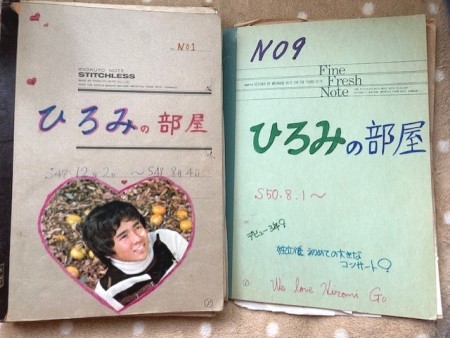 No 1
KYOKUTO NOTE
STITCHLESS
ひろみの部屋
S47.12.2. 〜S48.8.4.
No 9
Fine
Fresh
Note
ひろみの部屋
S50.8.1〜
デビュー3年
初めての大きな
コンサート
We love Hiromi Go